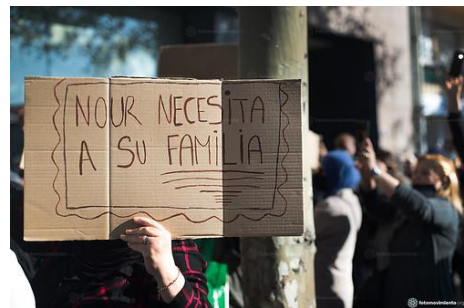 NOUR NECESITA
A SU FAMILIA
fotomovimiento.org